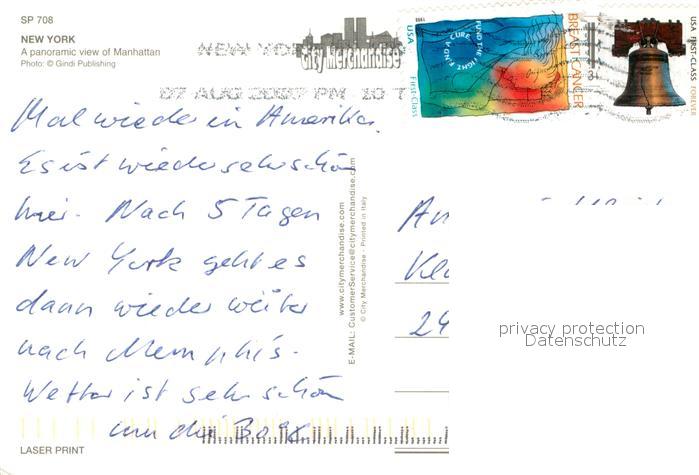 SP 708
NEW YORK
A panoramic view of Manhattan
Photo: © Gindi Publishing
City Merchandise
NEW YO
07 AUG 2007 PM 10 T
USA
First-Class
1998
FUND THE FIGHT. FIND A CURE.
BREAST CANCER
USA FIRST-CLASS FOREVER
Mal wieder in Amerika.
Es ist wieder sehr schön
hier. Nach 5 Tagen
New York geht es
dann wieder weiter
nach Memphis.
Wetter ist sehr schön
www.citymerchandise.com
E-MAIL: CustomerService@citymerchandise.com
© City Merchandise · Printed in Italy
An
24
privacy protection
Datenschutz
LASER PRINT